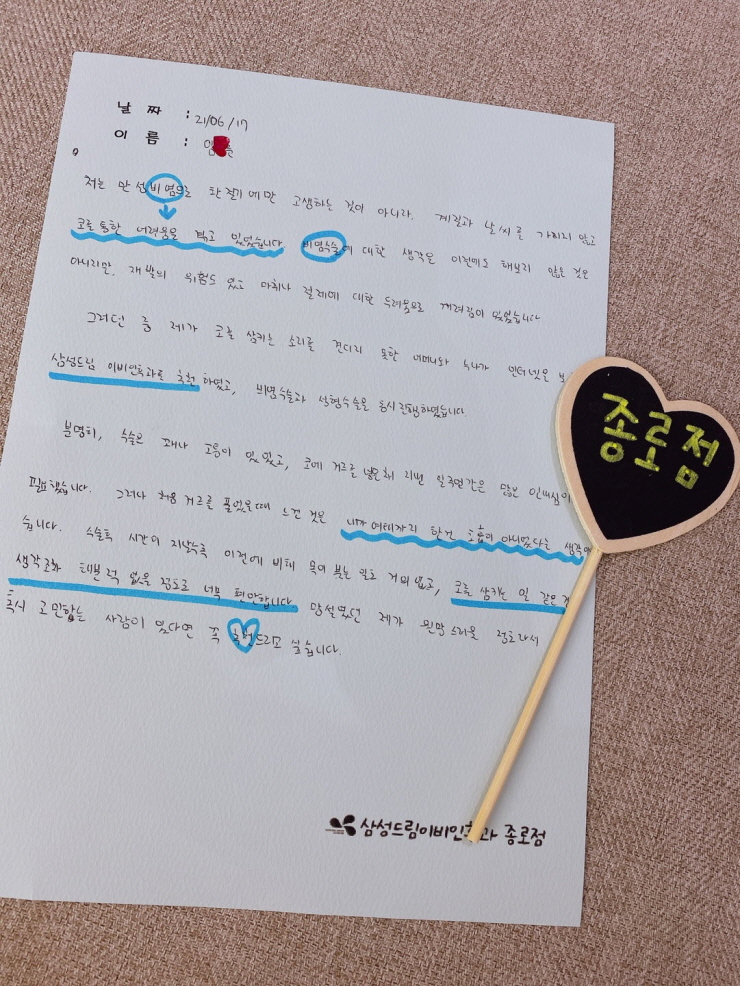 날 짜 : 21/06/17
이 름 :
저는 만성비염으로 환절기에만 고생하는 것이 아니라. 계절과 날씨를 가리지 않고
코를 통한 어려움을 겪고 있었습니다. 비염수술에 대한 생각은 이전에도 해보지 않은 것은
아니지만, 재발의 위험도 있고 마취나 절제에 대한 두려움으로 꺼려짐이 있었습니다
그러던 중 제가 코를 삼키는 소리를 견디지 못한 어머니와 누나가 인터넷을
삼성드림 이비인후과를 추천 하였고, 비염수술과 성형수술을 동시 진행하였습니다
분명히, 수술은 꽤나 고통이 있었고, 코에 거즈를 넣은채 지낸 일주일간은 많은 인내심이
필요했습니다. 그러나 처음 거즈를 풀었을때 느낀 것은 내가 여태까지 한건 호흡이 아니었다는 생각
습니다. 수술후 시간이 지날수록 이전에 비해 목이 붓는 일도 거의 없고, 코를 삼키는 일 같은
생각조차 해본적 없을 정도로 너무 편안합니다 망설였던 제가 원망스러울 정도라서
혹시 고민하는 사람이 있다면 꼭 추천드리고 싶습니다.
종로점
삼성드림이비인후과 종로점